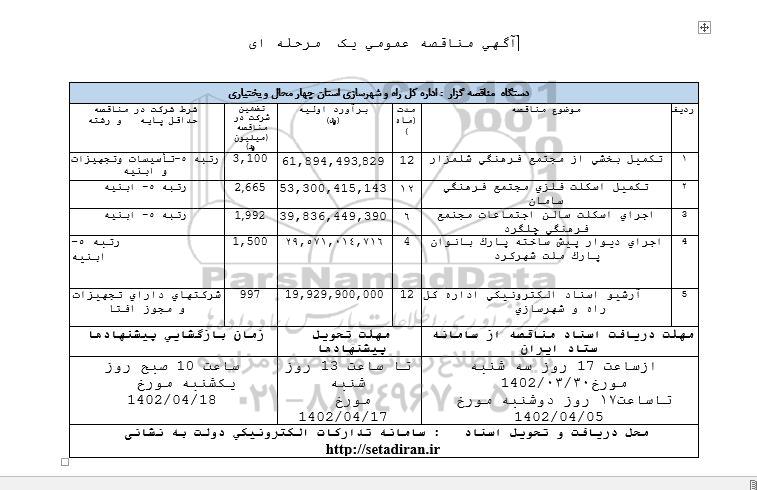 آگهي مناقصه عمومي يک مرحله اي
دستگاه مناقصه گزار : اداره کل راه و شهرسازی استان چهار محال و بختیاری
ردیف
موضوع مناقصه
مدت (ماه)
برآورد اولیه (ریال)
تضمین شرکت در مناقصه (میلیون ریال)
شرط شرکت در مناقصه حداقل پایه و رشته
۱ تکمیل بخشی از مجتمع فرهنگي شلمزار 12 61,894,493,829 3,100 رتبه ٥-تأسیسات وتجهیزات و ابنیه
۲ تکمیل اسکلت فلزي مجتمع فرهنگي سامان ۱۲ 53,300,415,143 2,665 رتبه ٥- ابنیه
3 اجراي اسکلت سالن اجتماعات مجتمع فرهنگي چلگرد ٦ 39,836,449,390 1,992 رتبه ٥- ابنیه
4 اجراي دیوار پیش ساخته پارك بانوان پارك ملت شهرکرد 4 ۲۹,٥۷۱,۰۱٤,۷۱٦ 1,500 رتبه ٥- ابنیه
٥ آرشیو اسناد الکترونیکي اداره کل راه و شهرسازي 12 19,929,900,000 997 شرکتهاي داراي تجهیزات و مجوز افتا
مهلت دریافت اسناد مناقصه از سامانه ستاد ایران
مهلت تحویل پیشنهادها
زمان بازگشایي پیشنهادها
ازساعت 17 روز سه شنبه
مورخ۱402/۰۳/۳۰
تاساعت۱۷ روز دوشنبه مورخ
1402/04/05
تا ساعت 13 روز شنبه
مورخ
1402/04/17
ساعت 10 صبح روز
یکشنبه مورخ
1402/04/18
محل دریافت و تحویل اسناد : سامانه تدارکات الکترونیکي دولت به نشانی
http://setadiran.ir
ParsNamadData
۰۲۱-۸۸۳۴۹۶۷۰